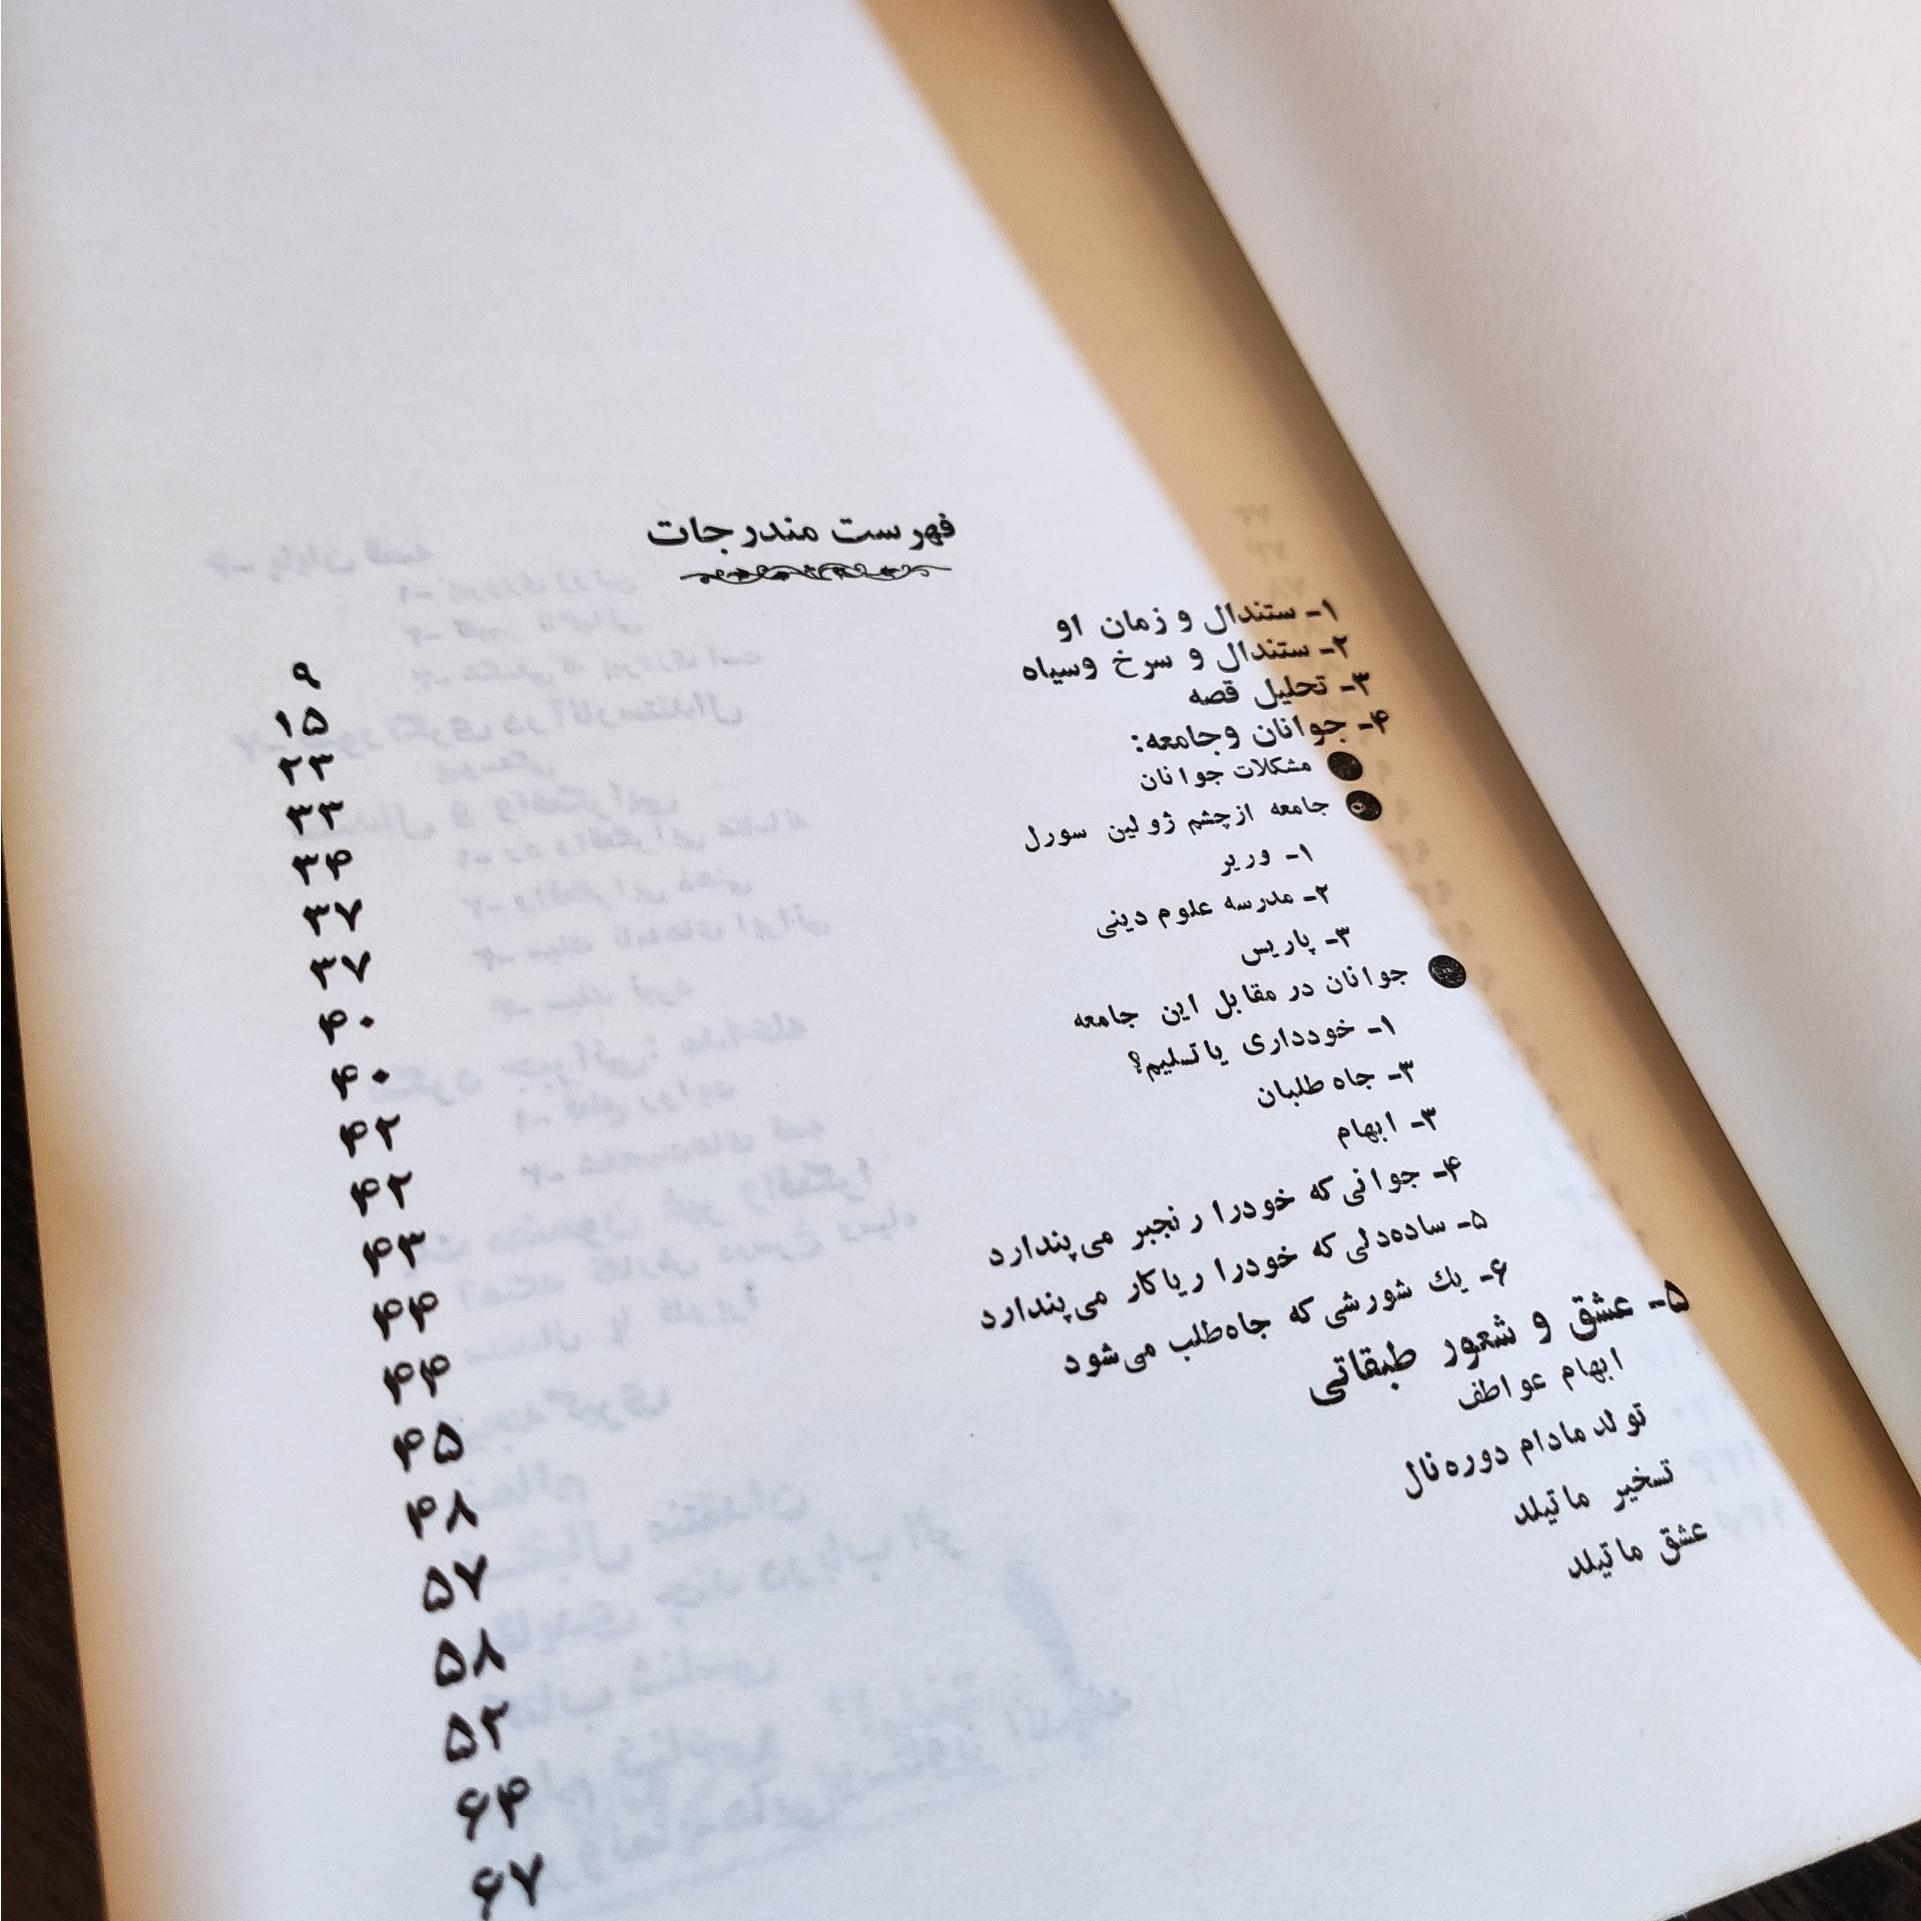 فهرست مندرجات
۱- ستندال و زمان او ۹
۲- ستندال و سرخ وسیاه ۱۵
۳- تحلیل قصه ۲۳
۴- جوانان وجامعه: ۳۳
مشکلات جوانان ۳۴
جامعه ازچشم ژولین سورل ۳۷
۱- وریر ۳۷
۲- مدرسه علوم دینی ۴۰
۳- پاریس ۴۰
جوانان در مقابل این جامعه ۴۲
۱- خودداری یاتسلیم؟ ۴۲
۳- جاه طلبان ۴۳
۳- ابهام ۴۴
۴- جوانی که خودرا رنجبر می‌پندارد ۴۴
۵- ساده‌دلی که خودرا ریاکار می‌پندارد ۴۵
۶- یك شورشی که جاه‌طلب می‌شود ۴۸
۵- عشق و شعور طبقاتی ۵۷
ابهام عواطف ۵۸
تولد مادام دوره‌نال ۵۳
تسخیر ماتیلد ۶۴
عشق ماتیلد ۶۷